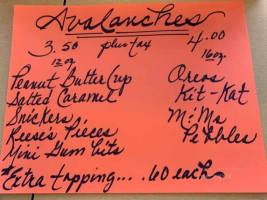 Avalanches
3.50 plus tax 4.00
12oz 16oz.
Peanut Butter Cup Oreos
Salted Caramel Kit-Kat
Snickers M&Ms
Reese's Pieces Pebbles
Mini Gum bits
*Extra topping... .60 each